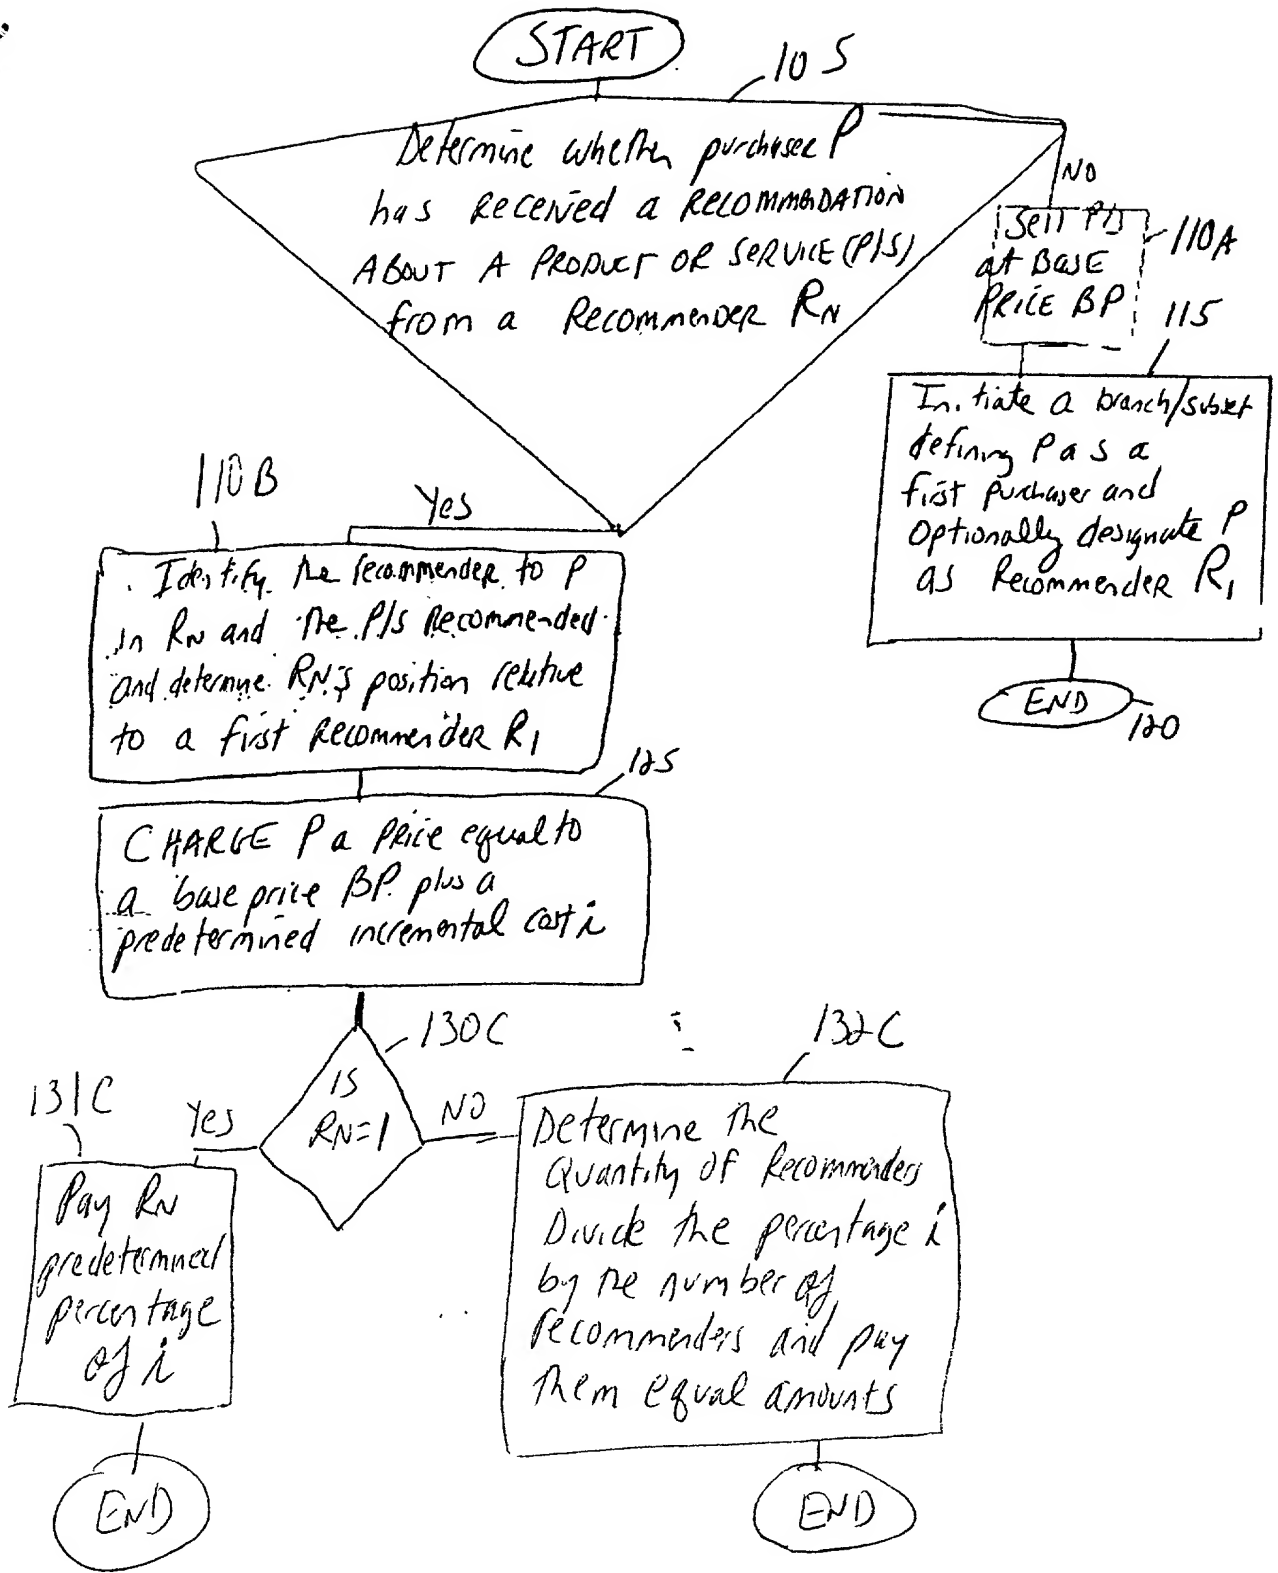 START
105
Determine whether purchaser P
has Received a RECOMMENDATION
ABOUT A PRODUCT OR SERVICE (P/S)
from a Recommender RN
NO
Sell P/S
at BASE
PRICE BP
110A
115
Initiate a branch/subset
defining P as a
first purchaser and
Optionally designate P
as Recommender R1
END
120
110B
Yes
Identify the recommender to P
in RN and the P/S Recommended
and determine RN's position relative
to a first Recommender R1
125
CHARGE P a PRICE equal to
a base price BP plus a
predetermined incremental cost i
130C
IS
RN=1
Yes
NO
131C
Pay RN
predetermined
percentage
of i
END
132C
Determine the
Quantity of Recommenders
Divide the percentage i
by the number of
recommenders and pay
them equal amounts
END